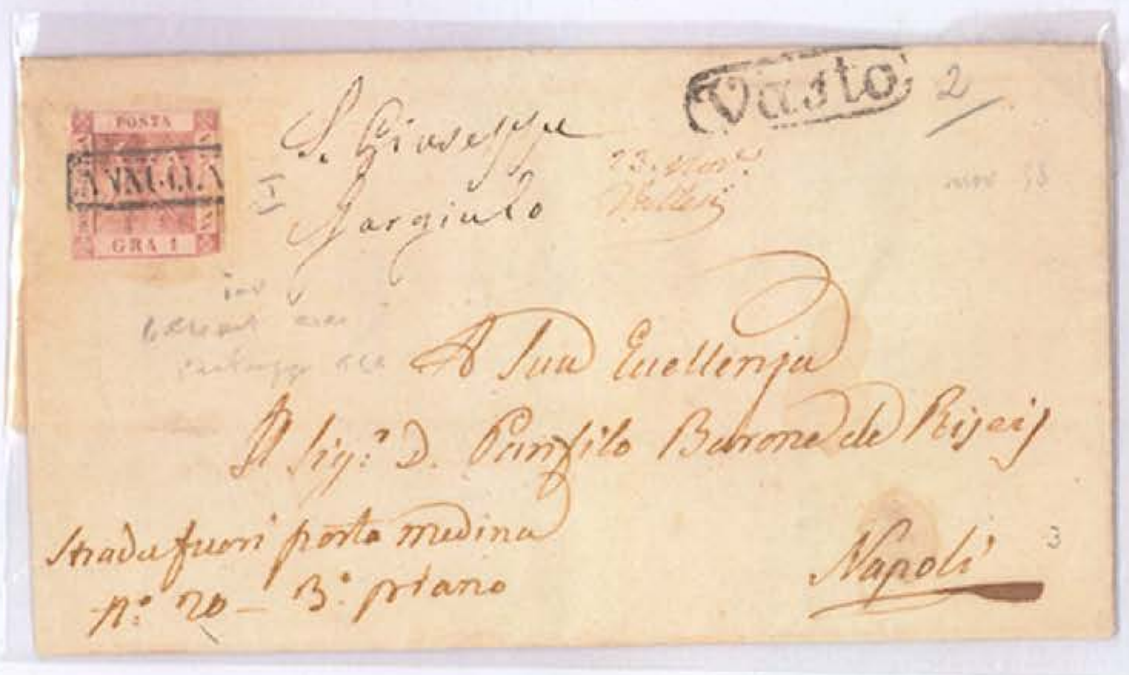 POSTA
ANNULLATO
GRA 1
Vasto
2
S. Giuseppe
Gargiulo
23. Nov.e
nov 58
A Sua Eccellenza
Il Sig.r D. Panfilo Barone de Riseis
Strada fuori porta medina
N.o 20 - 3.o piano
Napoli
3